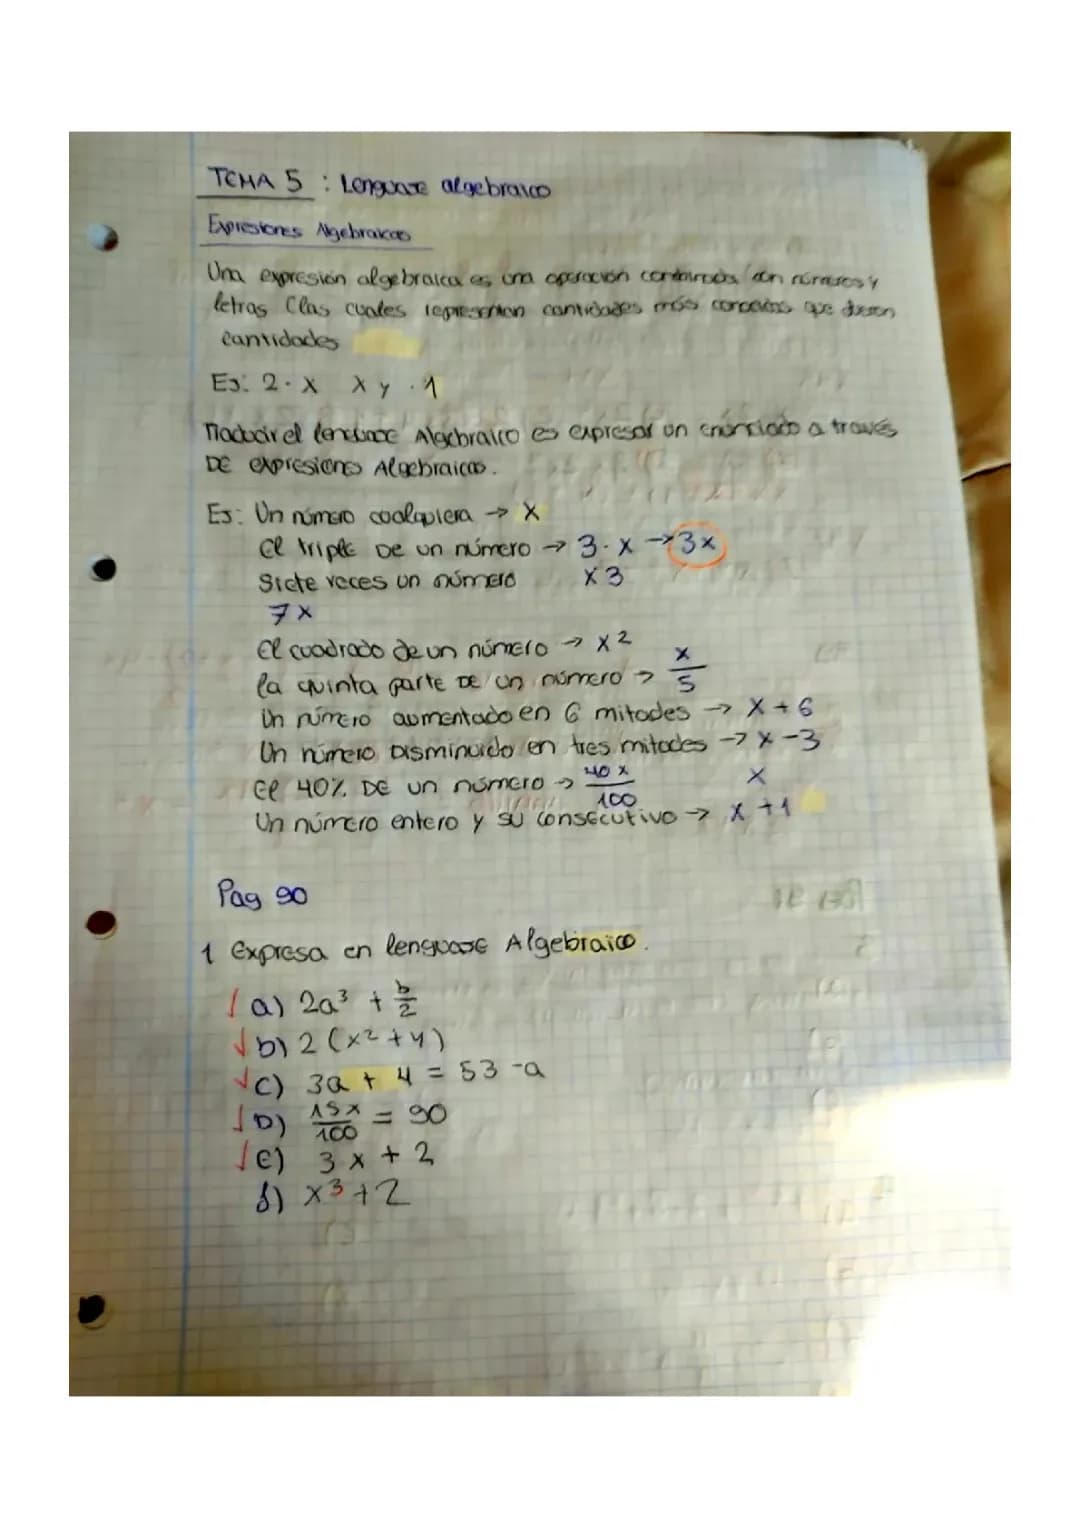 TEMA 5 : Lenguaje algebraico
Expresiones Algebraicas
Una expresión algebraica es una operación combinada con números y
letras (las cuales representan cantidades más que
cantidades
Ej: 2 · x x y · 1
Traducir el lenguaje Algebraico es expresar un enunciado a través
DE expresiones Algebraicas.
Ej: Un número cualquiera → x
El triple DE un número → 3 · x → 3x
Siete veces un número x3
7x
El cuadrado de un número → x²
la quinta parte DE un número → x/5
Un número aumentado en 6 mitades → x + 6
Un número Disminuido en tres mitades → x - 3
El 40% DE un número → 40x/100 x
Un número entero y su consecutivo → x + 1
Pag 90
1 Expresa en lenguaje Algebraico.
√ a) 2a³ + b/2
√ b) 2 (x² + y)
√ c) 3a + 4 = 53 - a
√ D) 15x/100 = 90
√ e) 3x + 2
f) x³ + 2